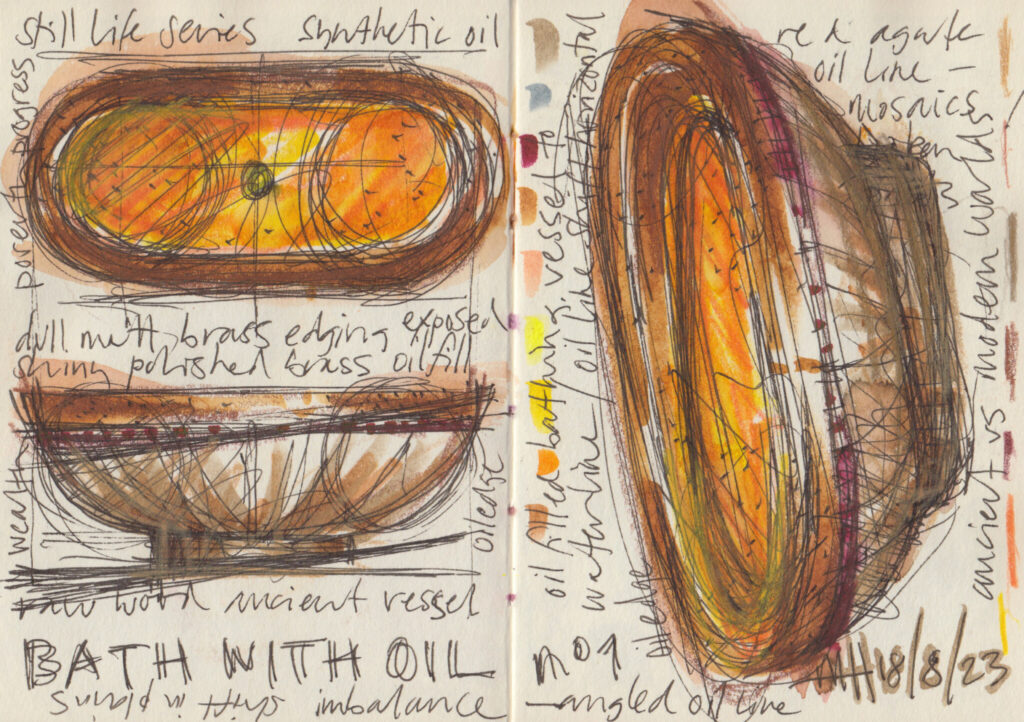 still life series synthetic oil
power progress
dull matt brass edging exposed
shiny polished brass oil fill
wealth
oil edge
raw wood ancient vessel
BATH WITH OIL
shift imbalance
no 1
angled oil line
oil filled bathing vessel to
waterline / oil line
horizontal
red agate
oil line –
mosaics
ancient vs modern worlds
MH 18/8/23